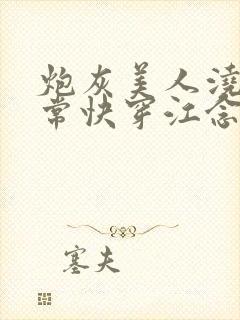 炮灰美人浇
常快穿江念
塞夫